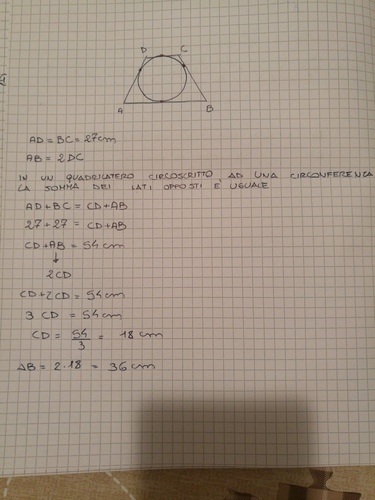 D C
A B
AD = BC = 27cm
AB = 2DC
IN UN QUADRILATERO CIRCOSCRITTO AD UNA CIRCONFERENZA
LA SOMMA DEI LATI OPPOSTI È UGUALE
AD + BC = CD + AB
27 + 27 = CD + AB
CD + AB = 54 cm
↓
2CD
CD + 2CD = 54 cm
3 CD = 54 cm
CD = 54/3 = 18 cm
AB = 2·18 = 36 cm